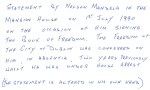 STATEMENT BY NELSON MANDELA IN THE
MANSION HOUSE ON 1st JULY 1990
ON THE OCCASION OF HIM SIGNING
THE ROLL OF FREEDOM. THE FREEDOM OF
THE CITY OF DUBLIN WAS CONFERRED ON
HIM IN ABSENTIA, TWO YEARS PREVIOUSLY
WHILST HE WAS UNDER HOUSE ARREST
(THE STATEMENT IS ALTERED IN HIS OWN HAND)